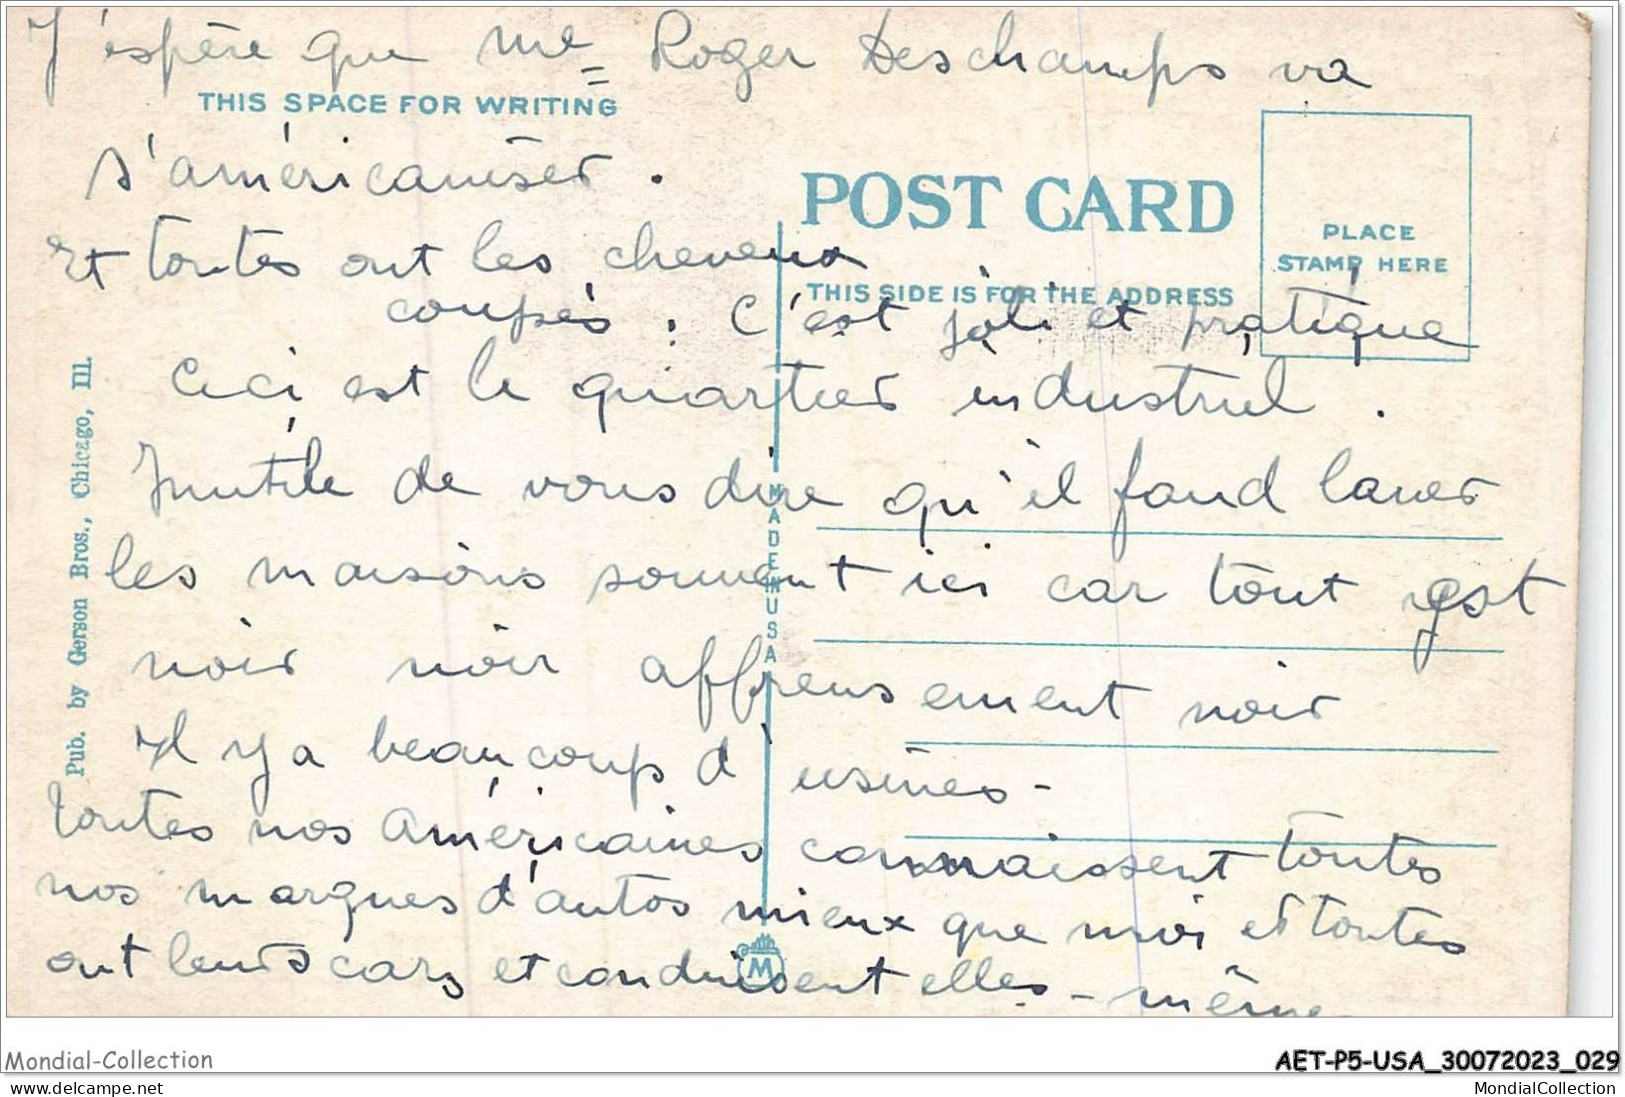 J'espère que Me Roger Deschamps va
THIS SPACE FOR WRITING
s'américaniser.
POST CARD
PLACE
STAMP HERE
Et toutes ont les cheveux
THIS SIDE IS FOR THE ADDRESS
coupés. C'est joli et pratique
Ceci est le quartier industriel.
Inutile de vous dire qu'il faud laver
les maisons souvent ici car tout est
noir noir affreusement noir
Il y a beaucoup d'usines-
toutes nos américaines connaissent toutes
nos marques d'autos mieux que moi et toutes
ont leurs cars et conduisent elles-même
Pub. by Gerson Bros., Chicago, Ill.
MADE IN USA
M
Mondial-Collection
AET-P5-USA_30072023_029
www.delcampe.net
MondialCollection